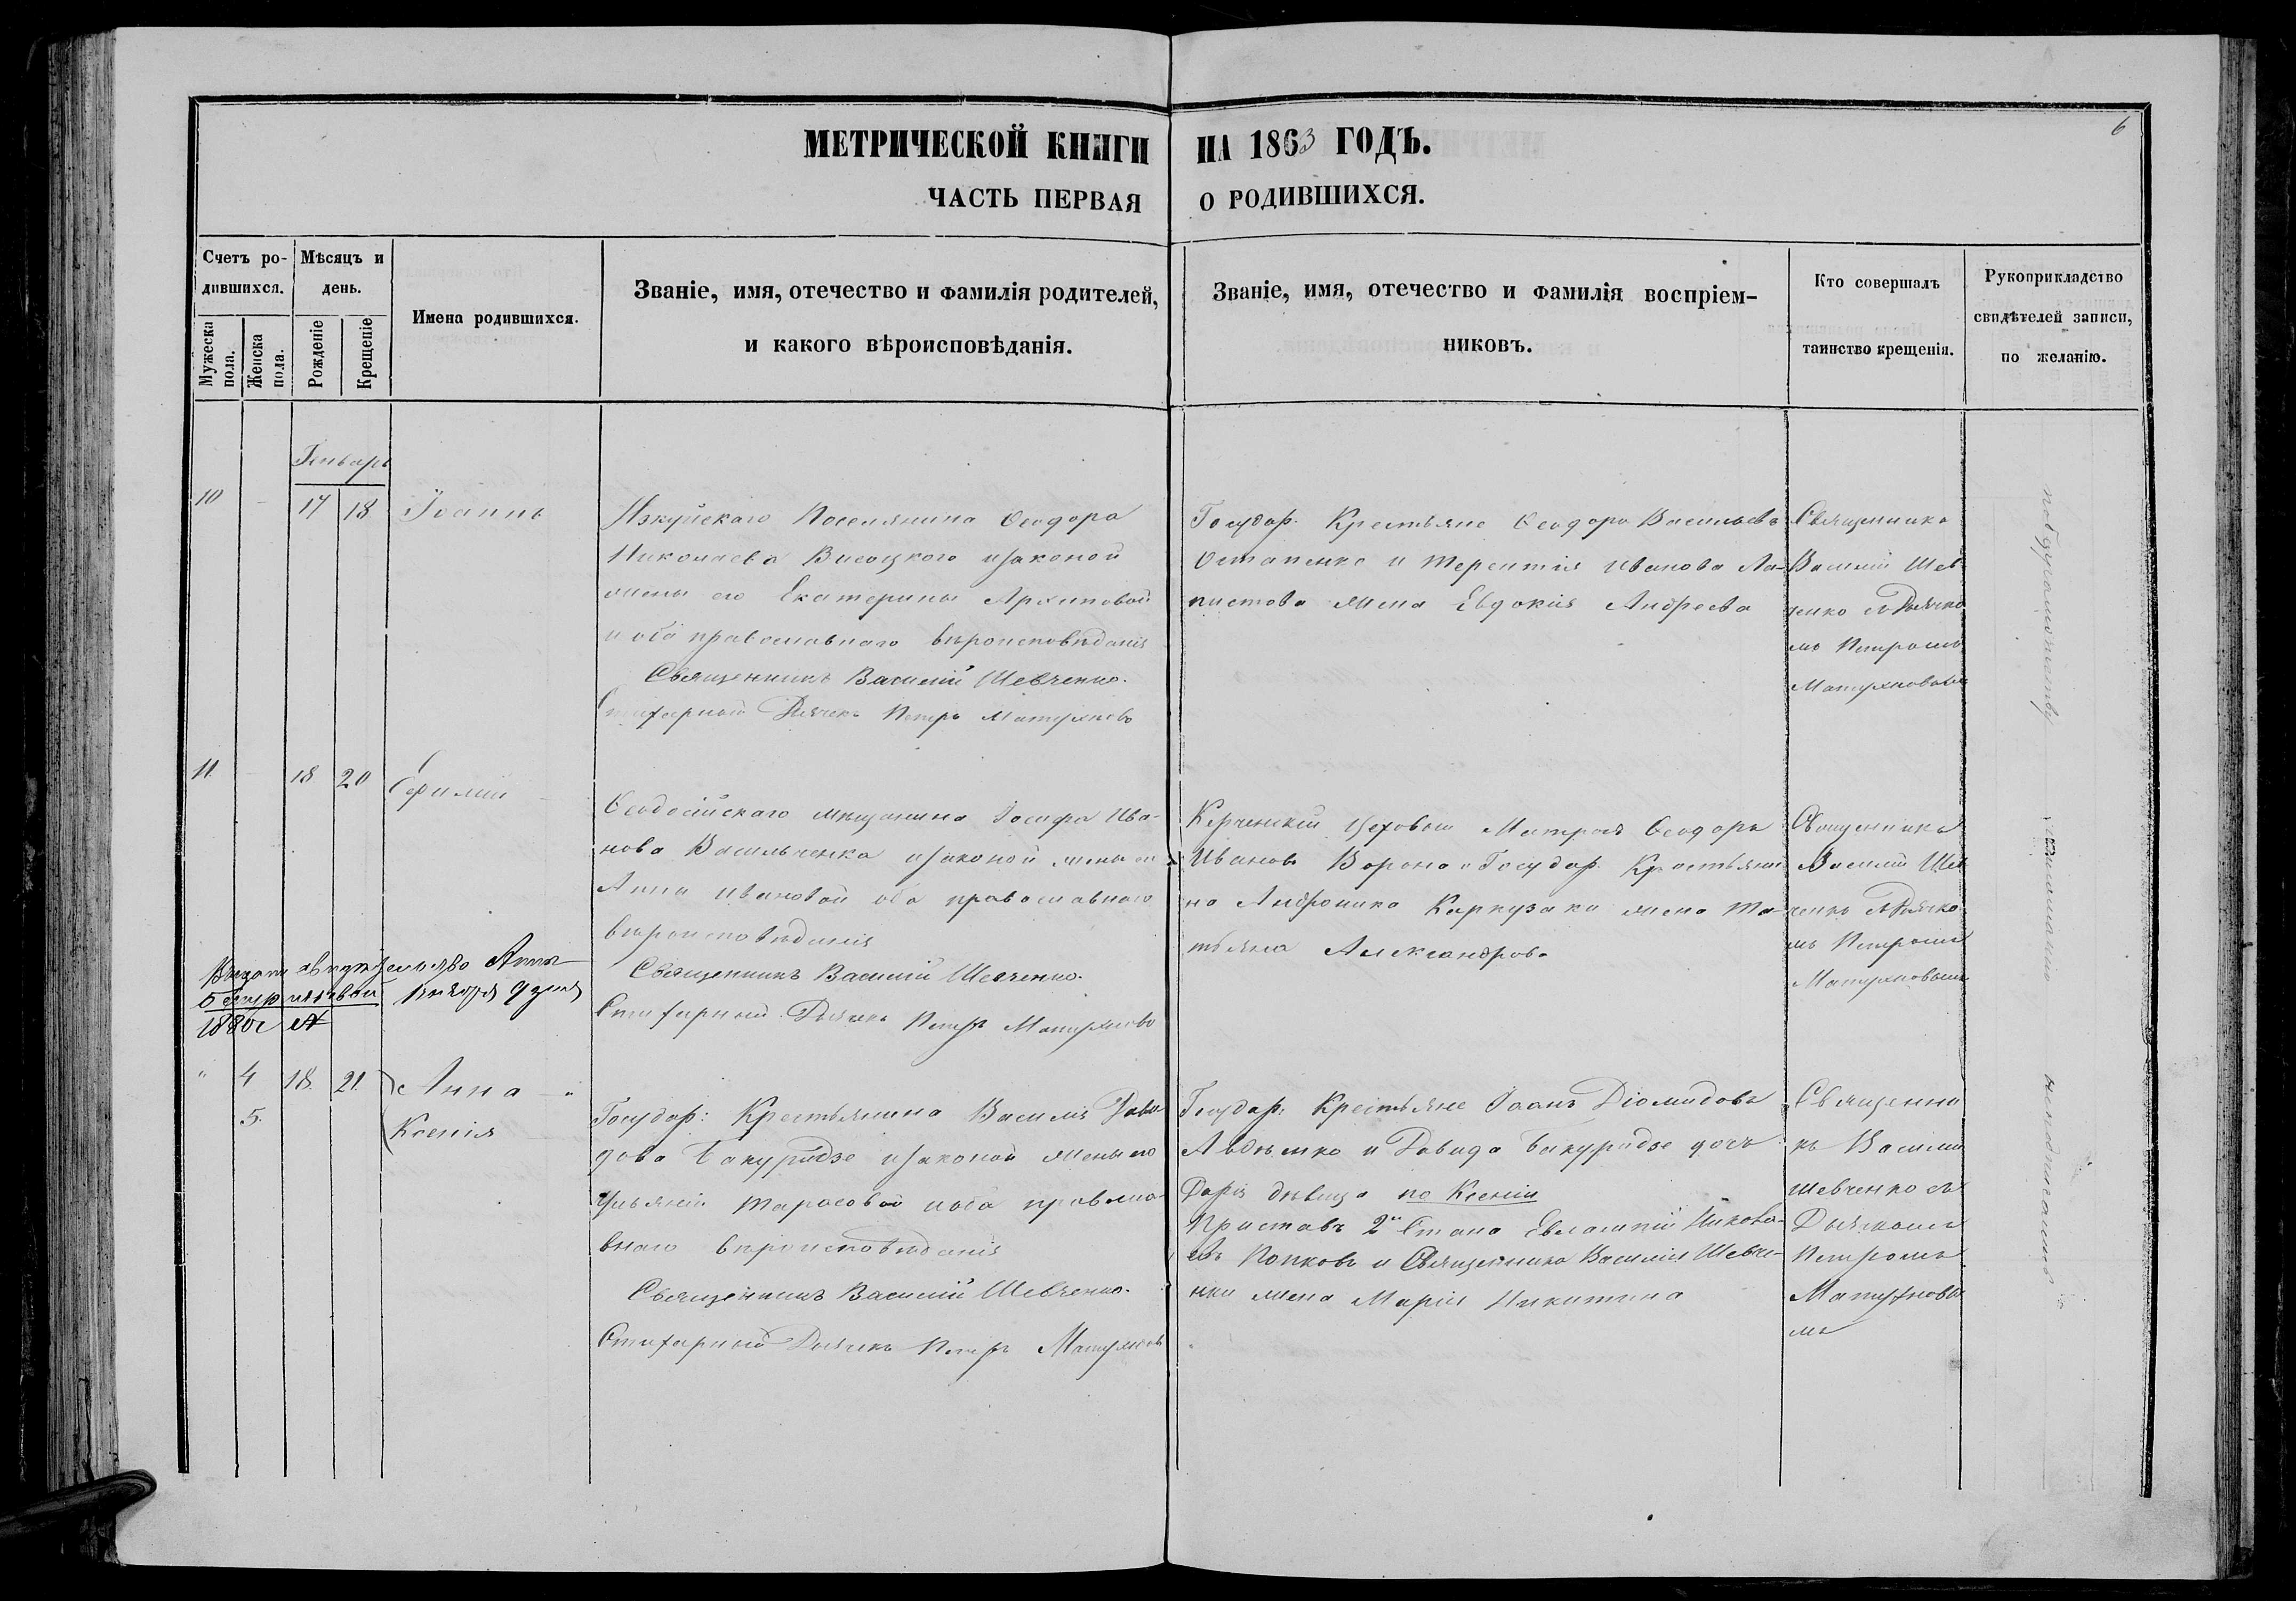 6
МЕТРИЧЕСКОЙ КНИГИ НА 1863 ГОДЪ.
ЧАСТЬ ПЕРВАЯ О РОДИВШИХСЯ.
Счетъ ро-
дившихся.
Мужеска пола.
Женска пола.
Мѣсяцъ и
день.
Рожденіе
Крещеніе
Имена родившихся.
Званіе, имя, отечество и фамилія родителей,
и какого вѣроисповѣданія.
Званіе, имя, отечество и фамилія воспріем-
никовъ.
Кто совершалъ
таинство крещенія.
Рукоприкладство
свидѣтелей записи,
по желанію.
Генварь
10 - 17 18 Іоаннъ
Поселянина Ѳеодора
Николаева Висоцкого изаконой
жены его Екатерины Архиповой
и оба православнаго вѣроисповѣданія
Священникъ Василій Шевченко.
Стихарный Дьячекъ Петръ
Государ. Крестьяне Ѳеодоръ Васильевъ
Остапенко и Терентія Иванова Ла-
жена Евдокія Андреева
Священникъ
Василій Шев
ченко съ Дьячко
мъ Петромъ
11 - 18 20 Ефимій
Ѳеодосійскаго мѣщанина Іосифа Ива-
нова Васильченка изаконой жены ег
Анни Ивановой оба православнаго
вѣроисповѣданія
Священникъ Василій Шевченко.
Стихарный Дьячекъ Петръ
Керченскій Цеховой Матрозъ Ѳеодоръ
Ивановъ Ворона и Государ. Крестьяни
на Андроника жена Та-
тьяна Александрова
Священникъ
Василій Шев
ченко съ Дьячко
мъ Петромъ
свидетельство Анны
9 дня
1880 г
" 4 18 21 Анна
5. Ксенія
Государ: Крестьянина Василія Дави
дова Бакуридзе изаконой жены его
Ульяніи Тарасовой иоба правосла-
внаго вѣроисповѣданія
Священникъ Василій Шевченко.
Стихарный Дьячекъ Петръ
Государ: Крестьяне Іоанъ Діомидовъ
и Давида Бакуридзе дочь
Дарія дѣвица по Ксеніи
Приставъ 2го Стана Евлампій Никола-
евъ Попковъ и Священника Василія Шевче-
нки жена Марія Никитина
Священни
къ Василій
Шевченко съ
Дьячкомъ
Петромъ